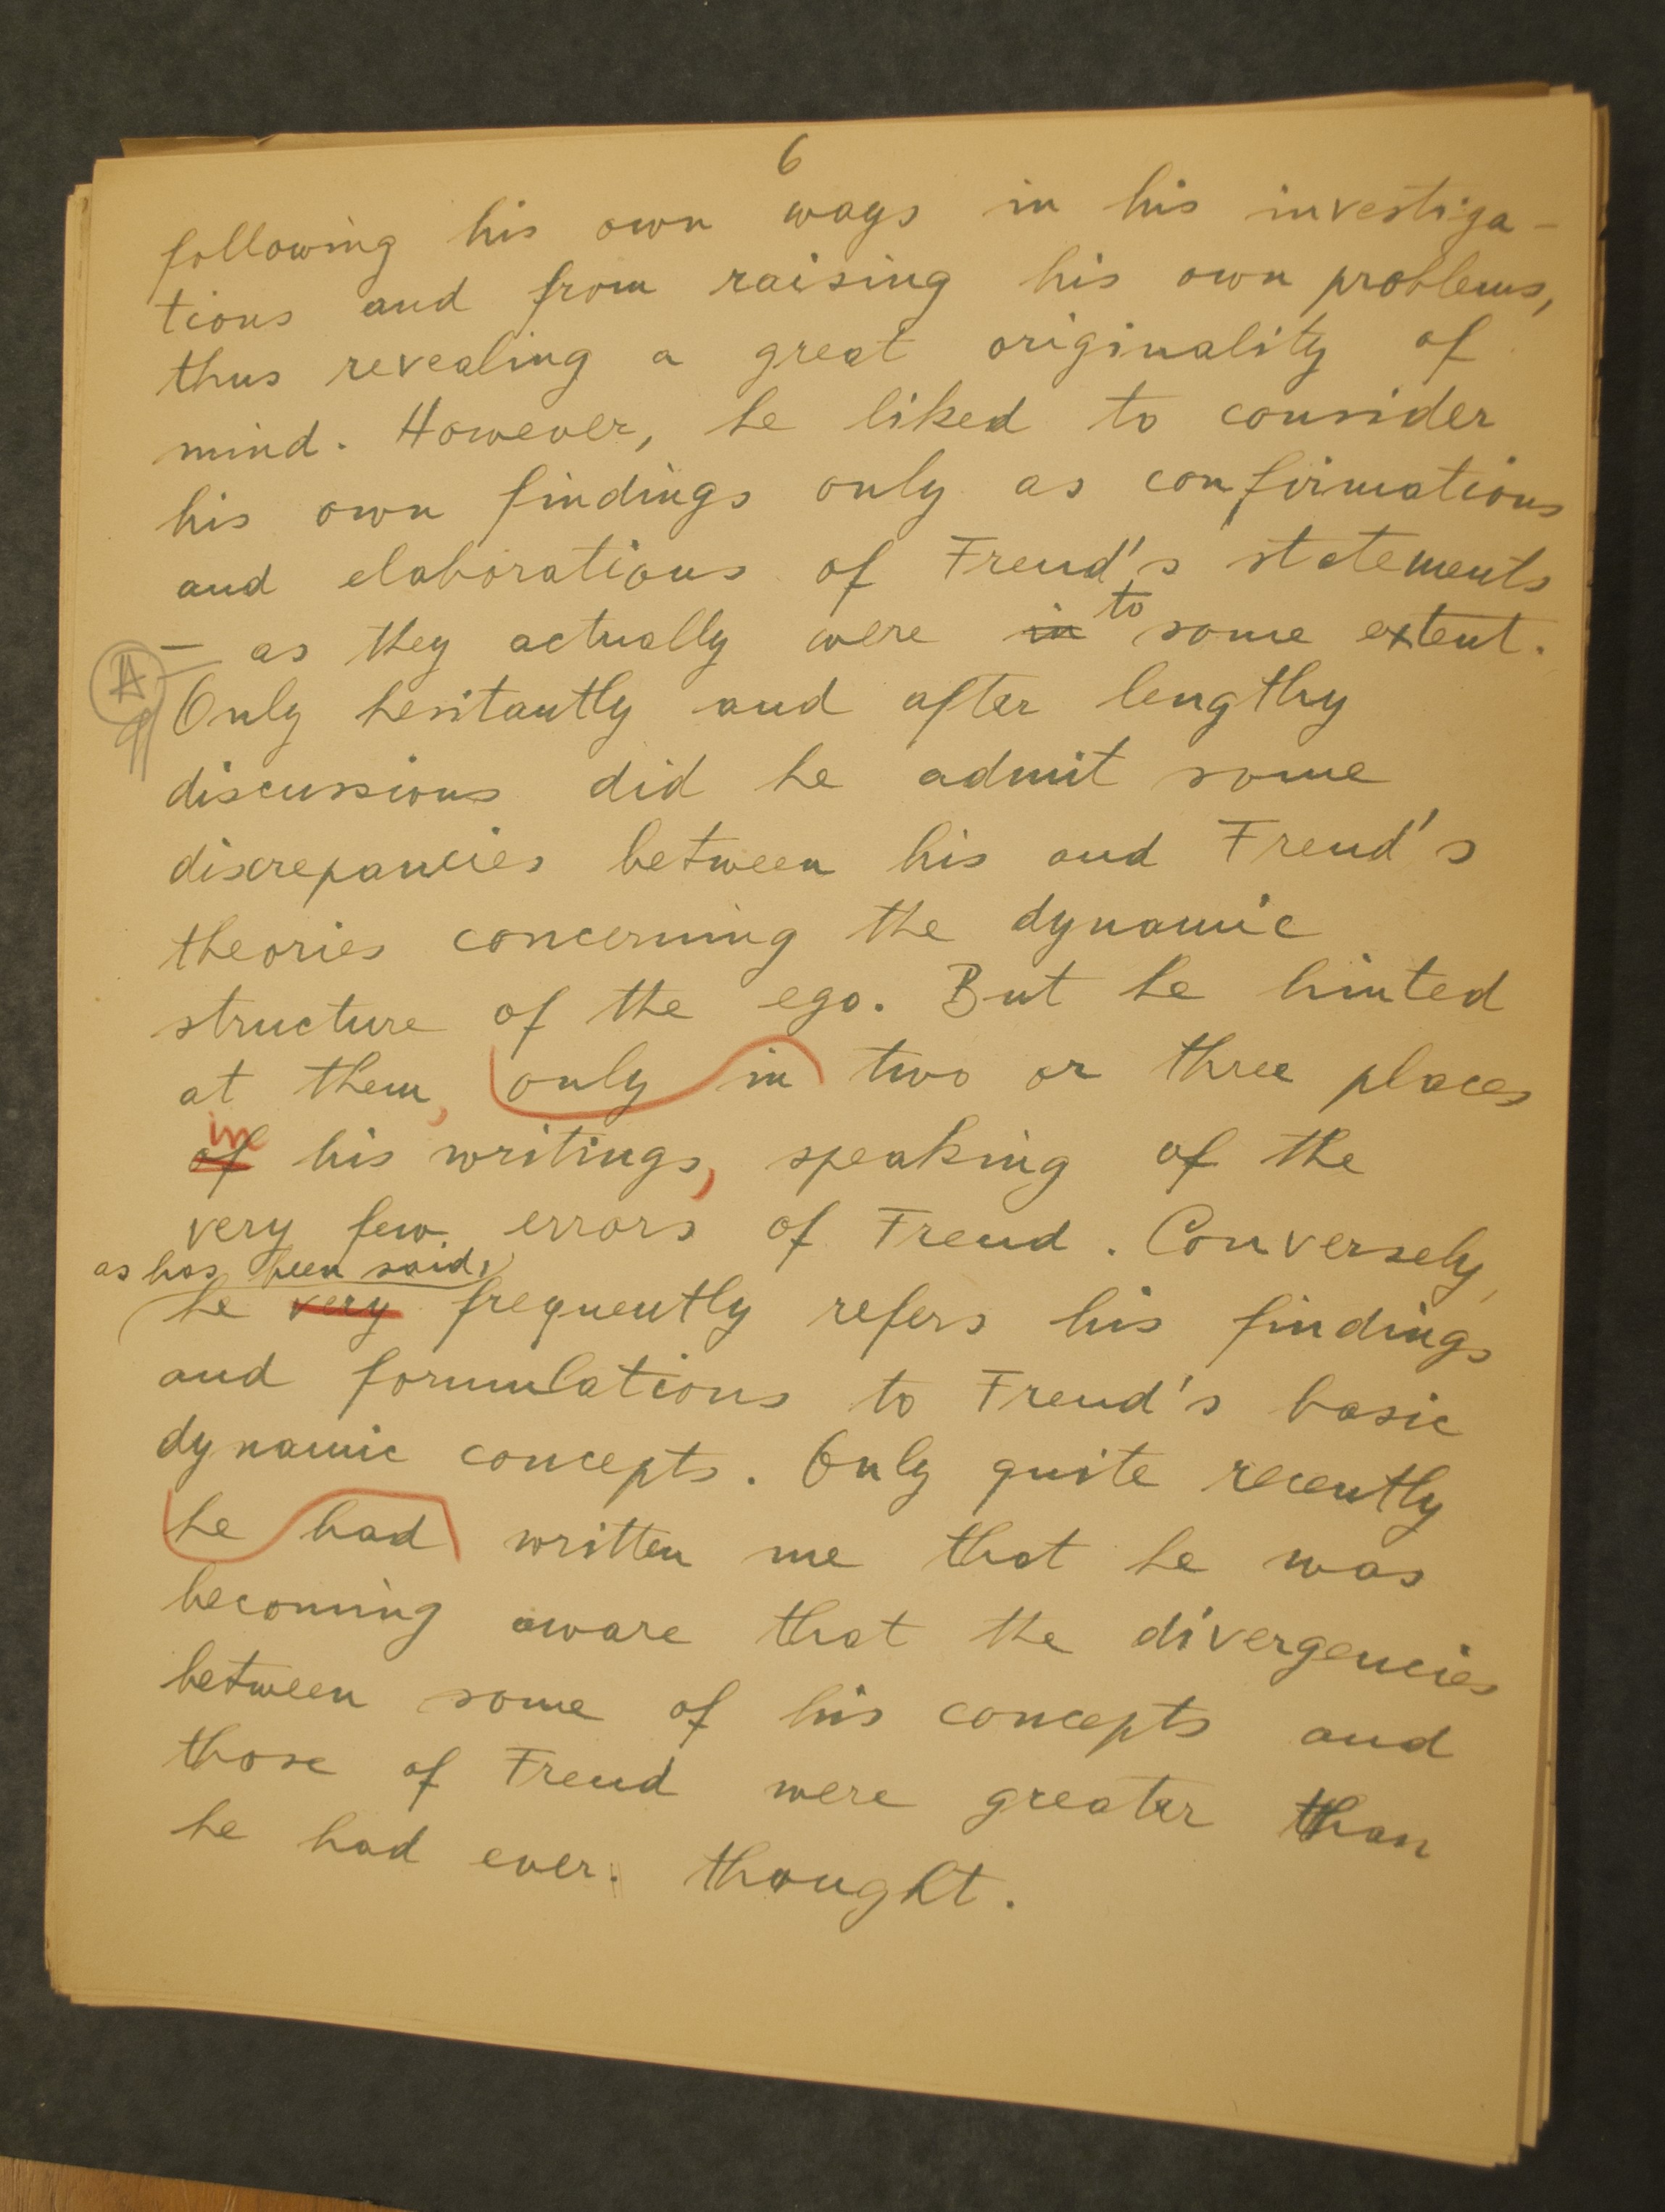 6
following his own ways in his investiga-
tions and from raising his own problems,
thus revealing a great originality of
mind. However, he liked to consider
his own findings only as confirmations
and elaborations of Freud's statements
to
— as they actually were in some extent.
A
¶
Only hesitantly and after lengthy
discussions did he admit some
discrepancies between his and Freud's
theories concerning the dynamic
structure of the ego. But he hinted
at them, only in two or three places
in
of his writings, speaking of the
very few errors of Freud. Conversely,
as has been said,
he very frequently refers his findings
and formulations to Freud's basic
dynamic concepts. Only quite recently
he had written me that he was
becoming aware that the divergencies
between some of his concepts and
those of Freud were greater than
he had ever thought.